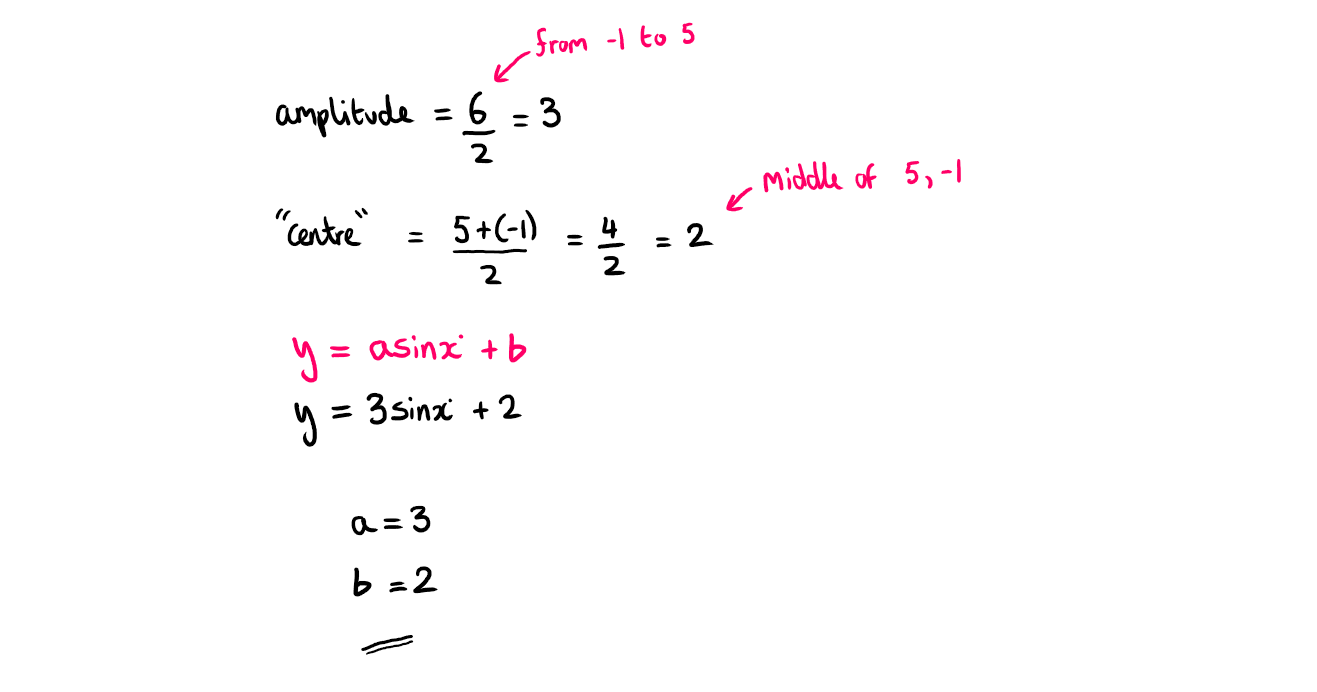 from -1 to 5
amplitude = 6/2 = 3
middle of 5, -1
"centre" = 5+(-1)/2 = 4/2 = 2
y = asinx + b
y = 3sinx + 2
a = 3
b = 2